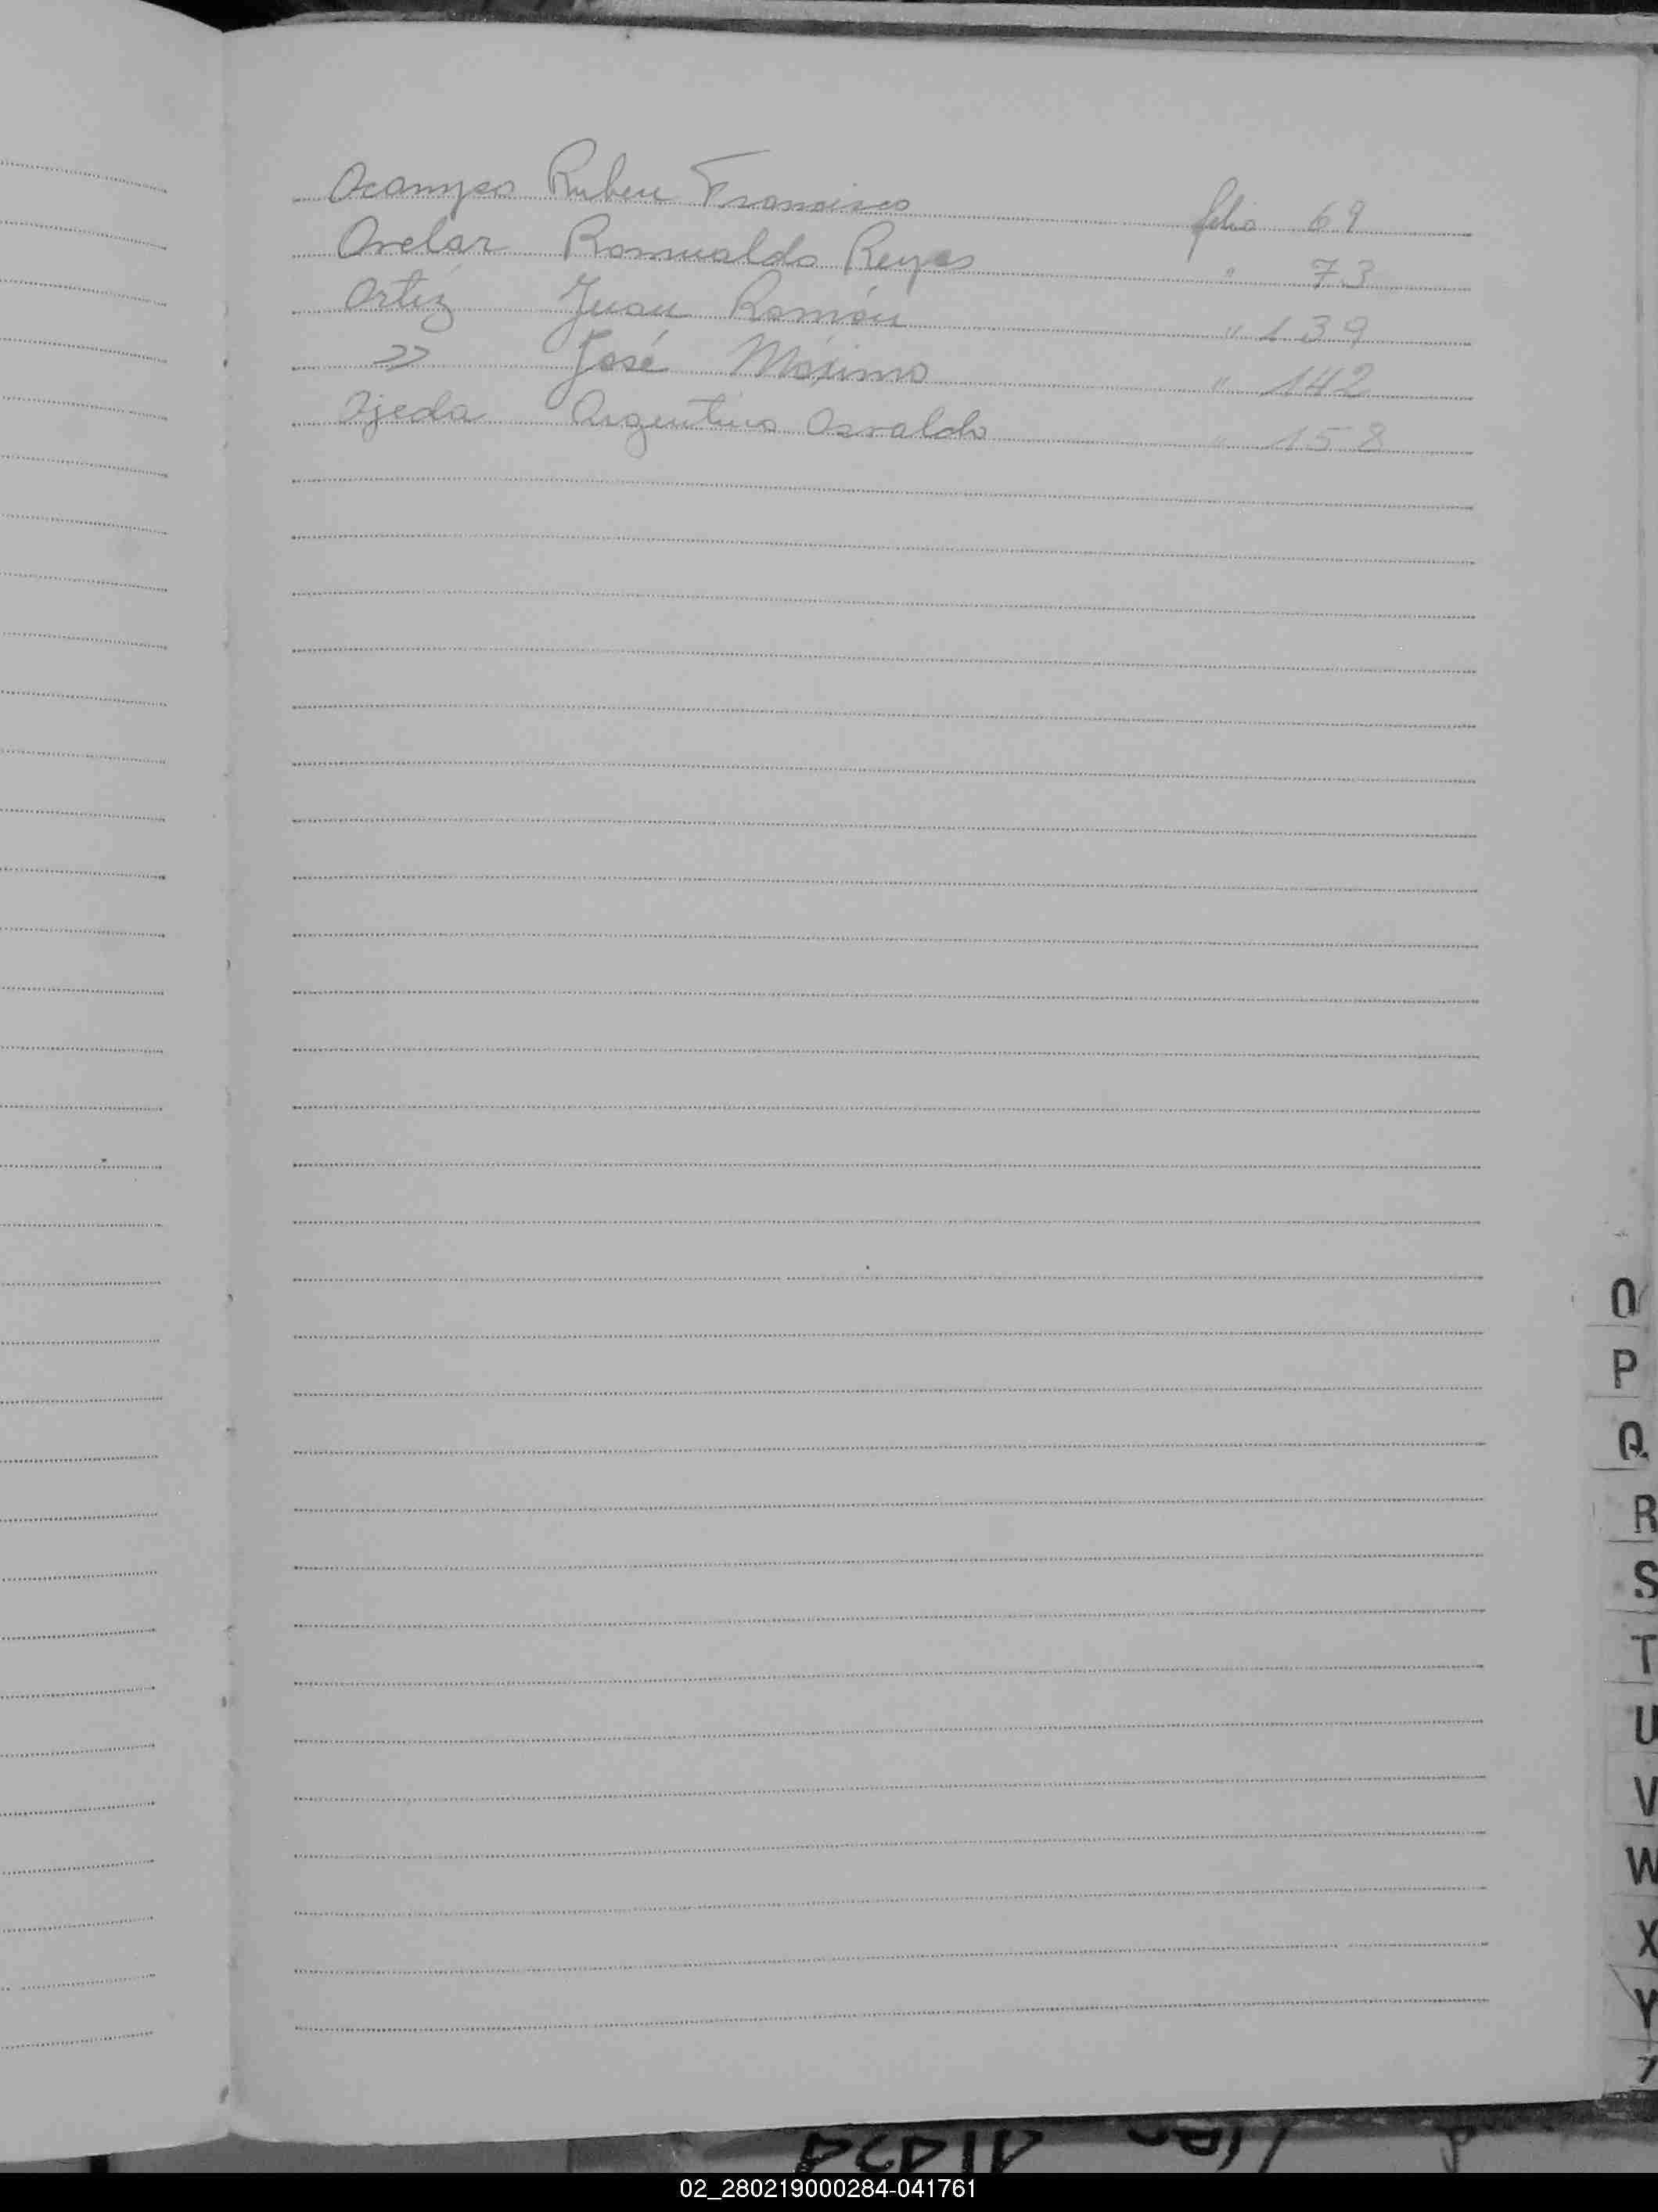 Ocampo Ruben Francisco folio 69
Ovelar Romualdo Reyes " 73
Ortíz Juan Ramón " 139
>> José Máximo " 142
Ojeda Argentino Osvaldo " 158
O
P
Q
R
S
T
U
V
W
X
Y
Z
02_280219000284-041761